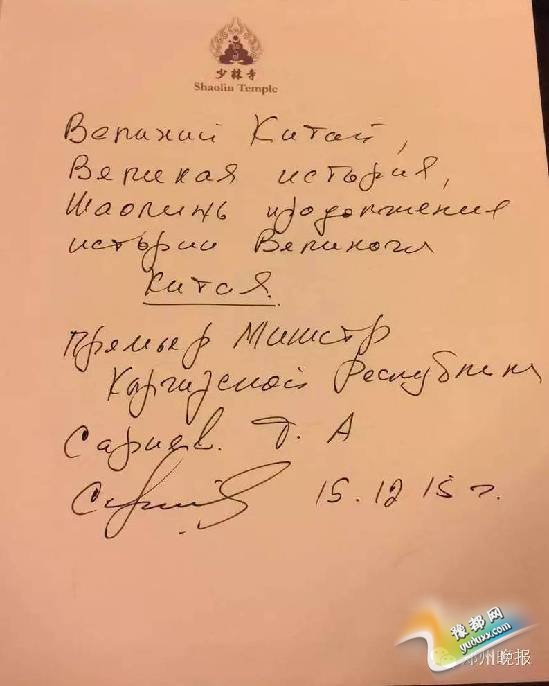 少林寺
Shaolin Temple
Великий Китай,
Великая история,
Шаолинь продолжение
истории Великого
Китая.
Премьер Министр
Кыргызской Республики
Сариев. Т. А
15.12 15 г.
豫都网
yuduxx.com
郑州晚报